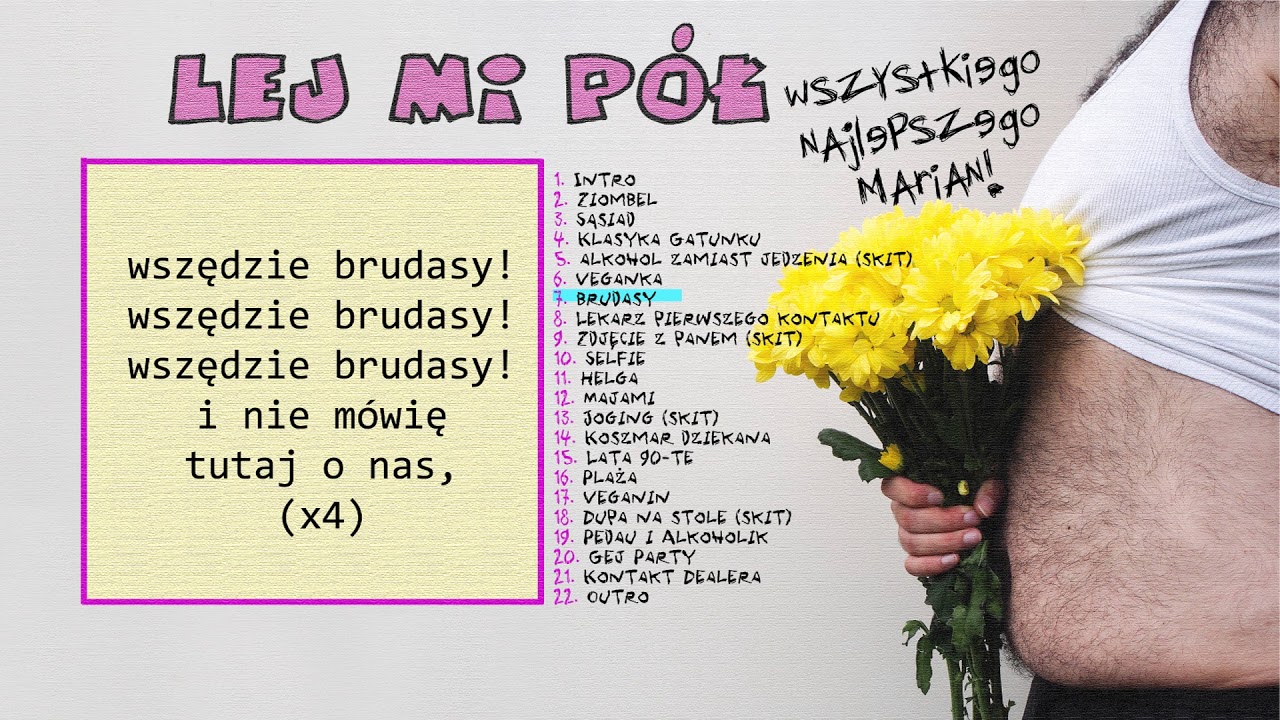 LEJ MI PÓŁ
WSZYSTKIEGO
NAJLEPSZEGO
MARIAN!
wszędzie brudasy!
wszędzie brudasy!
wszędzie brudasy!
i nie mówię
tutaj o nas,
(x4)
1. INTRO
2. ZIOMBEL
3. SĄSIAD
4. KLASYKA GATUNKU
5. ALKOHOL ZAMIAST JEDZENIA (SKIT)
6. VEGANKA
7. BRUDASY
8. LEKARZ PIERWSZEGO KONTAKTU
9. ZDJĘCIE Z PANEM (SKIT)
10. SELFIE
11. HELGA
12. MAJAMI
13. JOGING (SKIT)
14. KOSZMAR DZIEKANA
15. LATA 90-TE
16. PLAŻA
17. VEGANIN
18. DUPA NA STOLE (SKIT)
19. PEDAU I ALKOHOLIK
20. GEJ PARTY
21. KONTAKT DEALERA
22. OUTRO